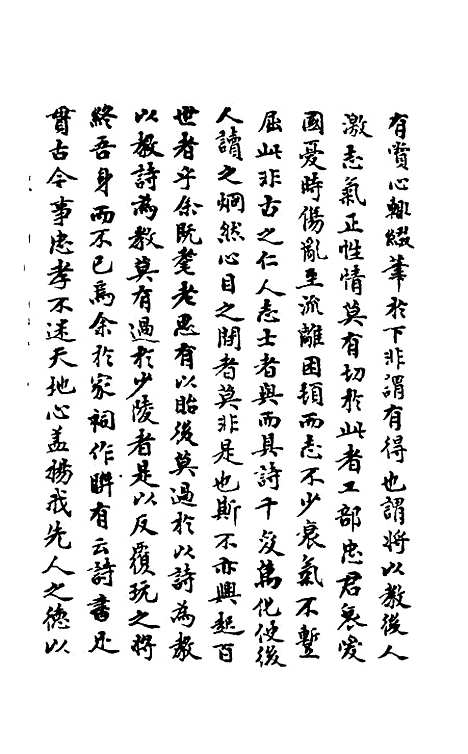 有賞心輒綴筆於下非謂有得也謂將以教後人
激志氣正性情莫有切於此者工部忠君哀愛
國憂時傷亂至流離困頓而志不少衰氣不蹔
屈此非古之仁人志士者與而其詩千變萬化使後
人讀之炯然心目之間者莫非是也斯不亦興起百
世者乎余既耄老思有以貽後莫過於以詩為教
以教詩為教莫有過於少陵者是以反覆玩之將
終吾身而不已焉余於家祠作聯有云詩書足
貫古今事忠孝不迷天地心盖揚我先人之德以